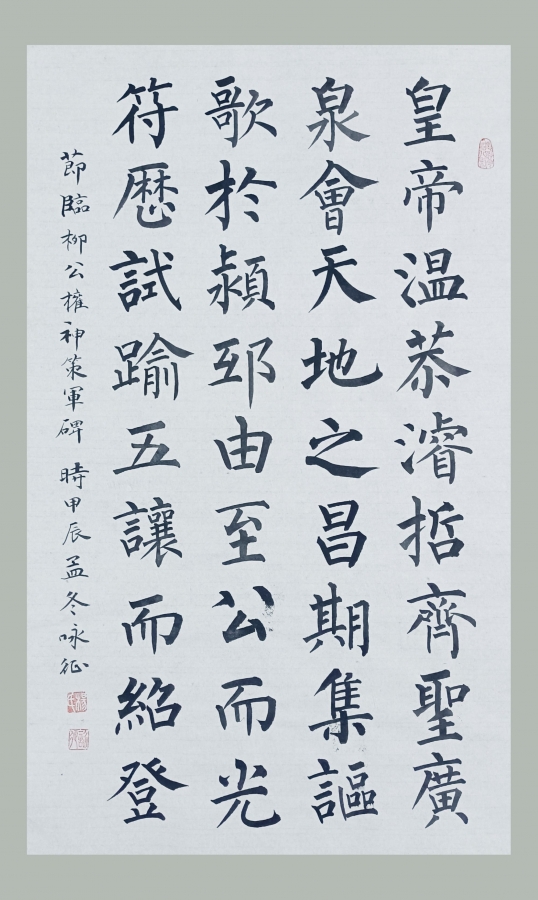 皇帝温恭濬哲齊聖廣
泉會天地之昌期集謳
歌於潁邸由至公而光
符歷試踰五讓而紹登
節臨柳公權神策軍碑 時甲辰孟冬咏征